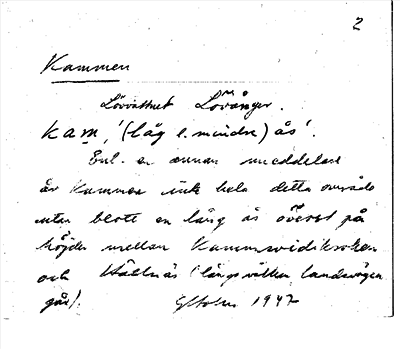 2
Kammen
Lövvattnet Lövånger.
kam, '(låg l. mindre) ås'.
Enl. en annan meddelare
är Kammen inte hela detta område
utan blott en lång ås överst på
höjden mellan Kammsvidjkroken
och Hällnäs (längs vilken landsvägen
går).
1947